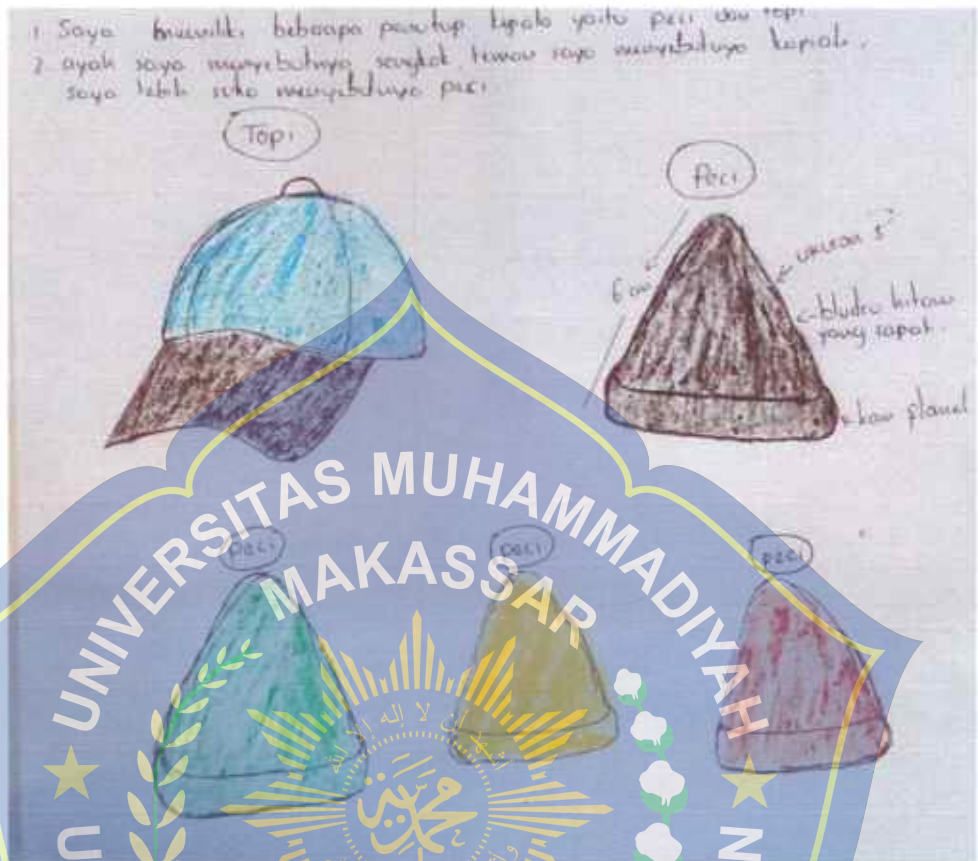 1 Saya memiliki beberapa penutup kepala yaitu peci dan topi
2 ayah saya menyebutnya songkok teman saya menyebutnya kopiah.
saya lebih suka menyebutnya peci.
Topi
Peci
6 cm
ukuran
bludru hitam
yang rapat.
kain planel
peci
peci
peci
UNIVERSITAS MUHAMMADIYAH
MAKASSAR
اشهد ان لا إله إلا الله
محمدية